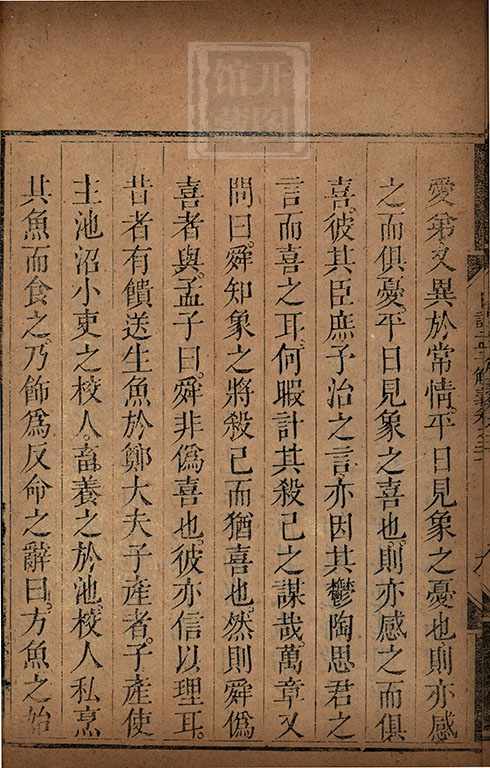 愛弟又異於常情。平日見象之憂也則亦感
之而俱憂。平日見象之喜也。則亦感之而俱
喜。彼其臣庶予治之言亦因其鬱陶思君之
言而喜之耳。何暇計其殺己之謀哉萬章又
問曰。舜知象之將殺己而猶喜也。然則舜僞
喜者與。孟子曰。舜非僞喜也。彼亦信以理耳。
昔者有饋送生魚於鄭大夫子產者。子產使
主池沼小吏之校人。畜養之於池。校人私烹
其魚而食之。乃飾爲反命之辭曰。方魚之始
開图
馆藏